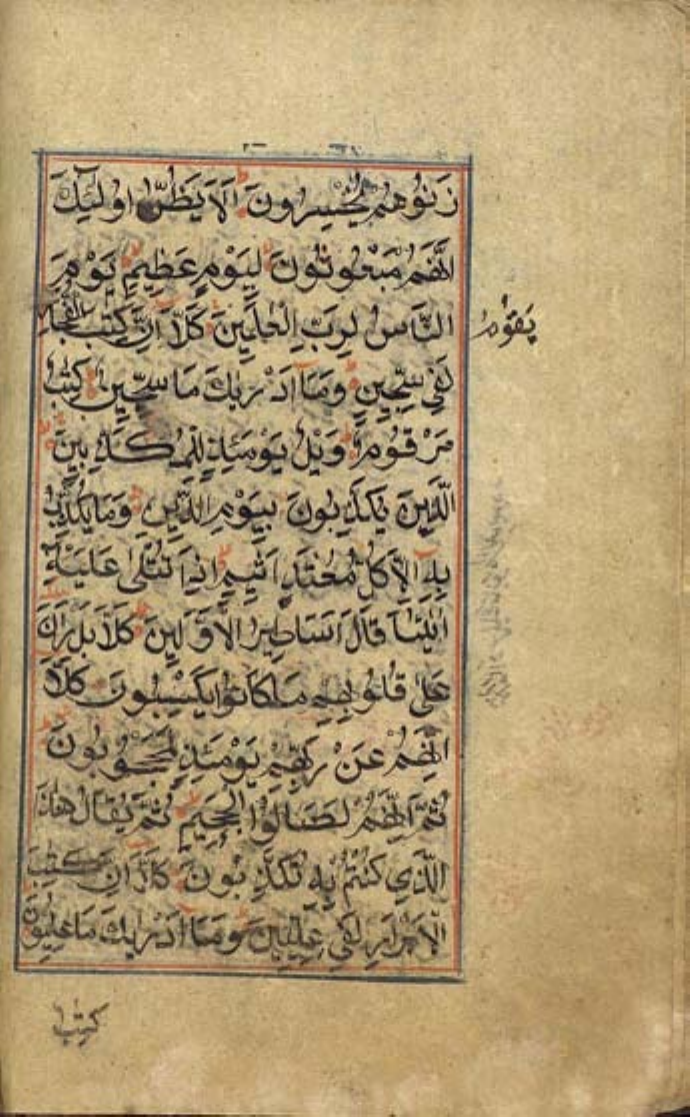 زَنُوهُمْ يُخْسِرُونَ اَلَا يَظُنُّ اُولٰئِكَ
اَنَّهُمْ مَبْعُوثُونَ لِيَوْمٍ عَظِيمٍ يَوْمَ
يَقُومُ
النَّاسُ لِرَبِّ الْعٰلَمِينَ كَلَّا اِنَّ كِتٰبَ الْفُجَّارِ
لَفِي سِجِّينٍ وَمَا اَدْرٰيكَ مَا سِجِّينٌ كِتٰبٌ
مَرْقُومٌ وَيْلٌ يَوْمَئِذٍ لِلْمُكَذِّبِينَ
الَّذِينَ يُكَذِّبُونَ بِيَوْمِ الدِّينِ وَمَا يُكَذِّبُ
بِهِ اِلَّا كُلُّ مُعْتَدٍ اَثِيمٍ اِذَا تُتْلٰى عَلَيْهِ
اٰيٰتُنَا قَالَ اَسَاطِيرُ الْاَوَّلِينَ كَلَّا بَلْ رَانَ
عَلٰى قُلُوبِهِمْ مَا كَانُوا يَكْسِبُونَ كَلَّا
اِنَّهُمْ عَنْ رَبِّهِمْ يَوْمَئِذٍ لَمَحْجُوبُونَ
ثُمَّ اِنَّهُمْ لَصَالُوا الْجَحِيمِ ثُمَّ يُقَالُ هٰذَا
الَّذِي كُنْتُمْ بِهِ تُكَذِّبُونَ كَلَّا اِنَّ كِتٰبَ
الْاَبْرَارِ لَفِي عِلِّيِّينَ وَمَا اَدْرٰيكَ مَا عِلِّيُّونَ
كِتٰبٌ